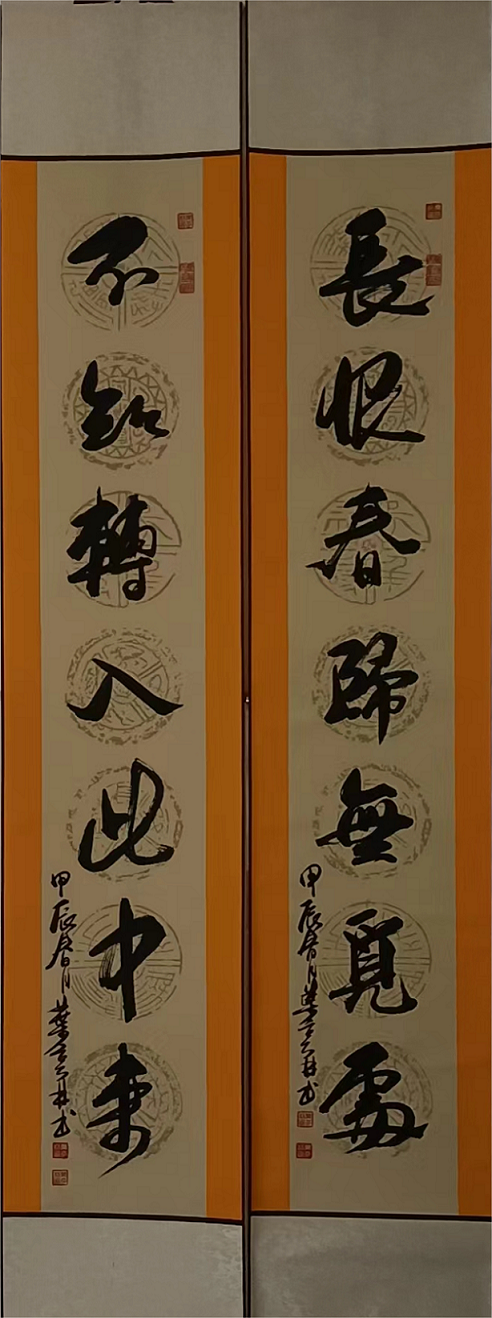 長恨春歸無覓處
甲辰春月
不知轉入此中來
甲辰春月